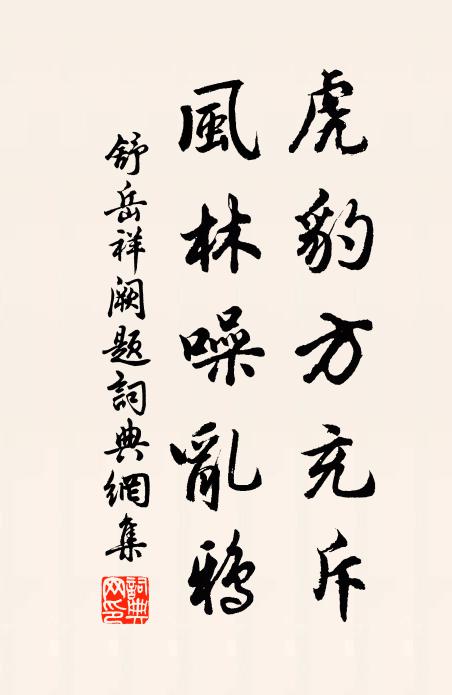 虎豹方充斥
風林噪亂鴉
舒岳祥闕題詞典網集
詞典网印